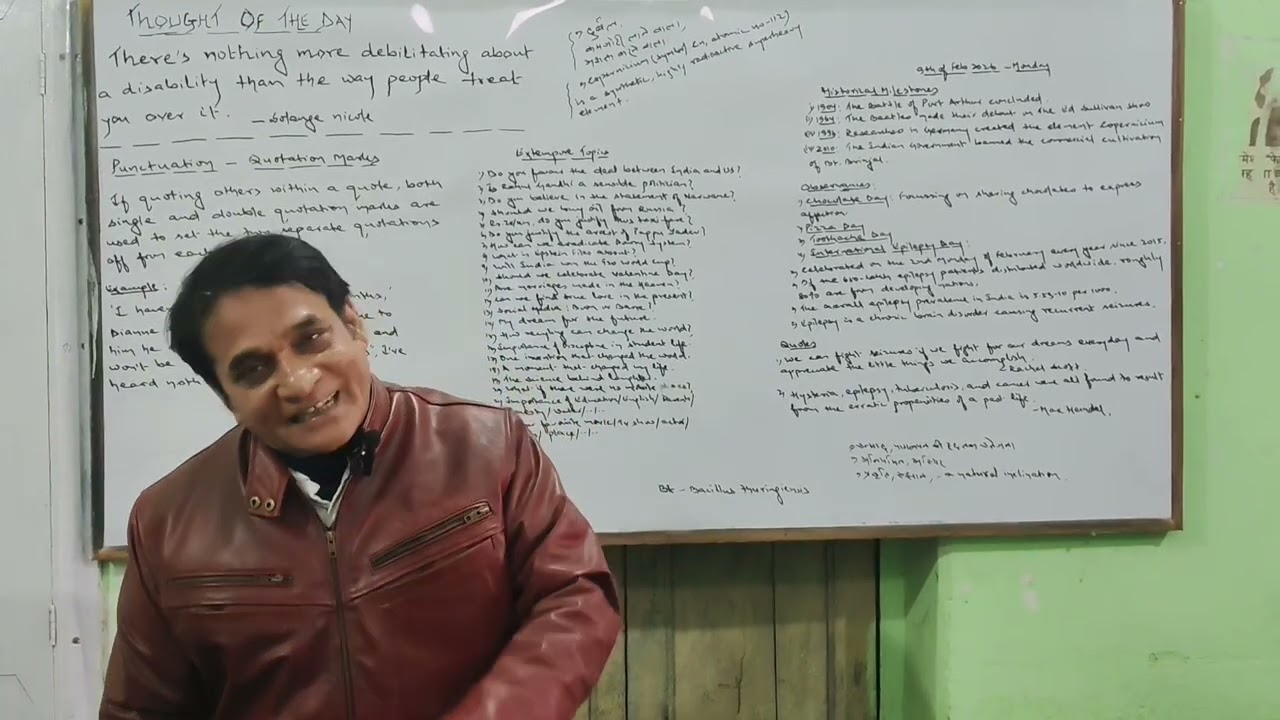 THOUGHT OF THE DAY
There's nothing more debilitating about
a disability than the way people treat
you over it. - Solange nicole
Punctuation - Quotation Marks
If quoting others within a quote, both
single and double quotation marks are
used to set the two separate quotations
off from
Example:
'I have
Dianne to
him he and
won't be I've
heard
दुर्बल
copernicium (symbol Cn, atomic no-112)
is a synthetic, highly radioactive superheavy
element.
Extempore Topics
Do you favour the deal between India and US?
Is Rahul Gandhi a sensible politician?
Do you believe in the statement of Narwane?
Should we buy oil from Russia?
do you justify this taxi fare?
Do you justify the arrest of Pappu Yadav?
How can we eradicate Dowry System?
What is Epstein Files about?
Will India win the T20 World Cup?
Should we celebrate Valentine Day?
Are marriages made in the Heaven?
Can we find true love in the present?
Social Media: Boon or Bane?
My dream for the future.
How recycling can change the world?
Importance of Discipline in student life.
One invention that changed the world.
A moment that changed my life.
The science behind
What if there were no
Importance of Education/English/Parents/
favourite movie/TV show/actor/
/place/../..
9th of Feb 2026 - Monday
Historical Milestones
i) 1904: The Battle of Port Arthur concluded.
ii) 1964: The Beatles made their debut on the Ed Sullivan show
1996: Researchers in Germany created the element Copernicium
2010: The Indian Government banned the commercial cultivation
of Bt. Brinjal.
Observances:
Chocolate Day: Focussing on sharing chocolates to express
affection.
Pizza Day
Toothache Day
International Epilepsy Day:
Celebrated on the 2nd Monday of February every year since 2015.
Of the 65 epilepsy patients distributed worldwide, roughly
80% are from developing nations.
The overall epilepsy prevalence in India is 5.59-10 per 1000.
Epilepsy is a chronic brain disorder causing recurrent seizures.
Quotes
We can fight seizures if we fight for our dreams everyday and
appreciate the little things we accomplish.
Hysteria, epilepsy, tuberculosis, and cancer were all found to result
from the erratic propensities of a past life.
- Max Heindel.
a natural inclination.
Bt - Bacillus thuringiensis